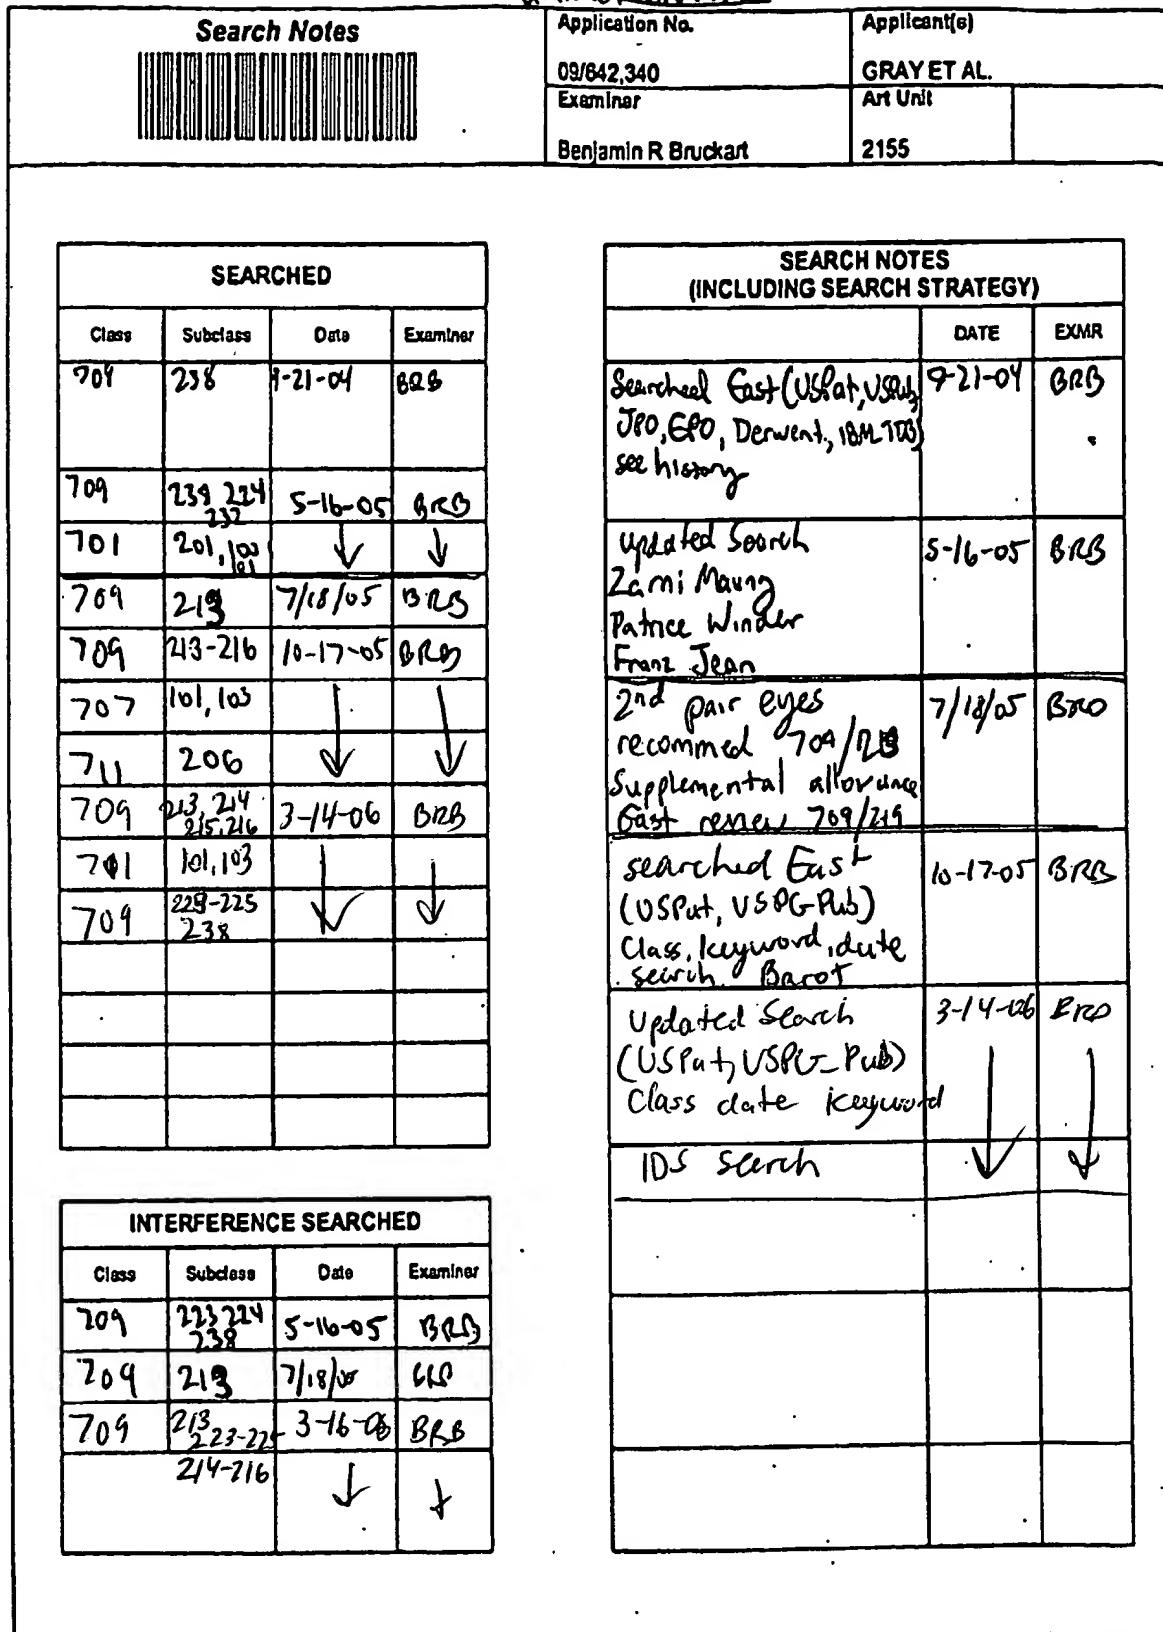 Search Notes
Application No.
Applicant(s)
09/642,340
GRAY ET AL.
Examiner
Art Unit
Benjamin R Bruckart
2155
SEARCHED
Class Subclass Date Examiner
709 238 9-21-04 BRB
709 238, 224 5-16-05 BRB
232
701 201, 100
101
709 219 7/18/05 BRB
709 213-216 10-17-05 BRB
707 101, 103
711 206
709 213, 214 3-14-06 BRB
215, 216
701 101, 103
709 223-225
238
INTERFERENCE SEARCHED
Class Subclass Date Examiner
709 223 224 5-16-05 BRB
238
709 219 7/18/05 BRB
709 213 3-16-06 BRB
223-225
214-216
SEARCH NOTES
(INCLUDING SEARCH STRATEGY)
DATE EXMR
Searched East (USPat, USPub, 9-21-04 BRB
JPO, EPO, Derwent, IBM TDB)
see history
updated Search 5-16-05 BRB
Zarni Maung
Patrice Winder
Franz Jean
2nd pair eyes 7/18/05 BRB
recommed 709/219
Supplemental allowance
East review 709/219
searched East 10-17-05 BRB
(USPat, USPG-Pub)
Class, keyword, date
search. Barot
Updated Search 3-14-06 BRB
(USPat, USPG-Pub)
Class date keyword
IDS Search